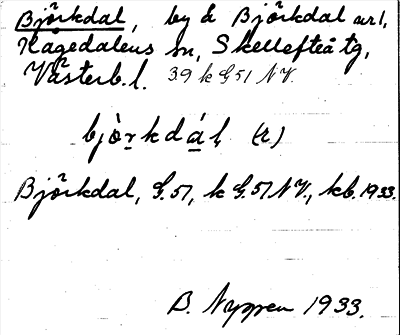 Björkdal, by å Björkdal nr 1,
Kågedalens sn, Skellefteå tg,
Västerb. l. 39 k G.51 NV.
bjò̱rkdá̱l, (r)
Björkdal, G.51, k G.51 NV., kb. 1933.
B. Nygren 1933.